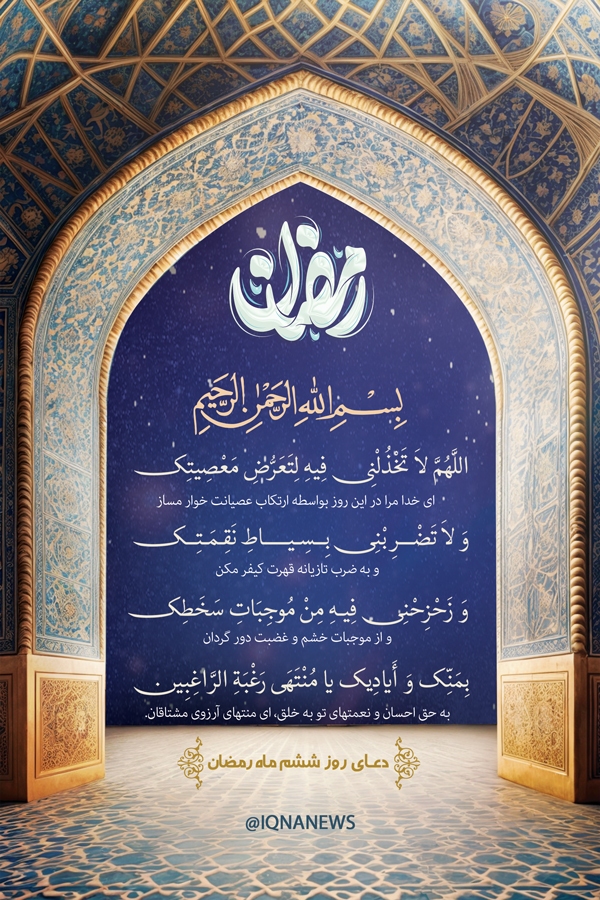 رمضان
بِسْمِ اللهِ الرَّحْمٰنِ الرَّحِیمِ
اللَّهُمَّ لاَ تَخْذُلْنِی فِیهِ لِتَعَرُّضِ مَعْصِیَتِک
ای خدا مرا در این روز بواسطه ارتکاب عصیانت خوار مساز
وَ لاَ تَضْرِبْنِی بِسِیاطِ نَقِمَتِک
و به ضرب تازیانه قهرت کیفر مکن
وَ زَحْزِحْنِی فِیهِ مِنْ مُوجِبَاتِ سَخَطِک
و از موجبات خشم و غضبت دور گردان
بِمَنِّک وَ أَیادِیک یا مُنْتَهَی رَغْبَةِ الرَّاغِبِین
به حق احسان و نعمتهای تو به خلق، ای منتهای آرزوی مشتاقان.
دعای روز ششم ماه رمضان
@IQNANEWS